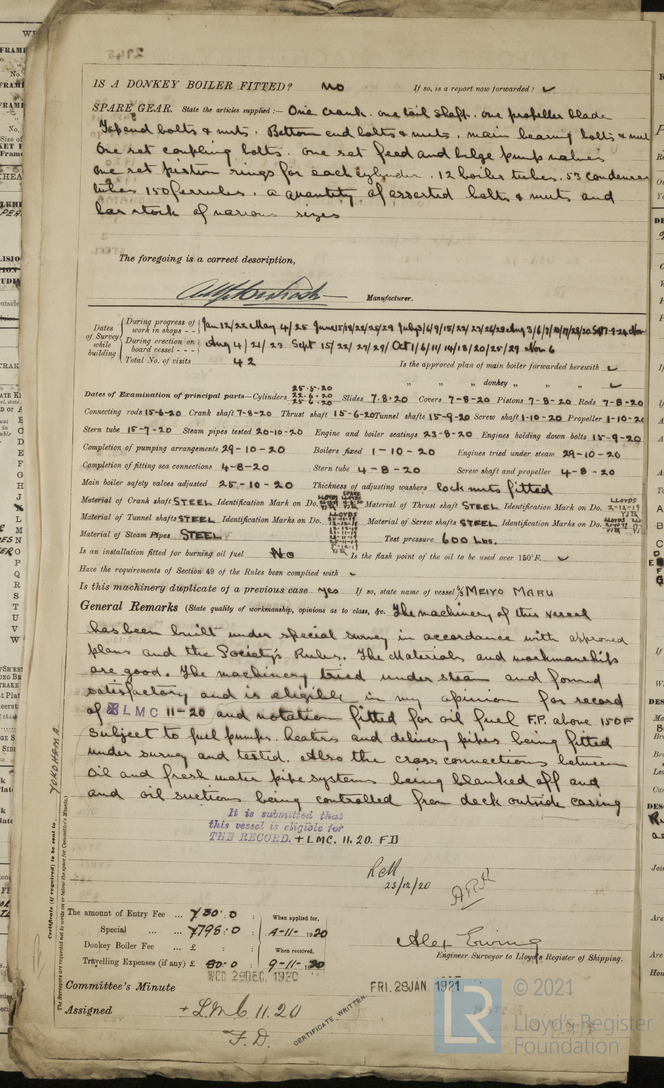 IS A DONKEY BOILER FITTED? No If so, is a report now forwarded? ✓
SPARE GEAR. State the articles supplied:— One crank. one tail shaft. one propeller blade
Topend bolts & nuts. Bottom end bolts & nuts. main bearing bolts & nuts
One set coupling bolts. one set feed and bilge pump valves
one set piston rings for each cylinder. 12 boiler tubes. 53 condenser
tubes 150 ferrules. a quantity of assorted bolts & nuts and
bar stock of various sizes
The foregoing is a correct description,
Manufacturer.
Dates of Survey while building
During progress of work in shops - - Jan 12/22 May 4/25 June 15/18/22/25/29 July
During erection on board vessel - - - Aug 4/21/23 Sept 15/22/27/29/ Oct 1/6/11/14/18/20/25/29 Nov 6
Total No. of visits 42 Is the approved plan of main boiler forwarded herewith ✓
" " " donkey " " ✓
Dates of Examination of principal parts—Cylinders 25-5-20 22-6-20 25-6-20 Slides 7-8-20 Covers 7-8-20 Pistons 7-8-20 Rods 7-8-20
Connecting rods 15-6-20 Crank shaft 7-8-20 Thrust shaft 15-6-20 Tunnel shafts 15-9-20 Screw shaft 1-10-20 Propeller 1-10-20
Stern tube 15-7-20 Steam pipes tested 20-10-20 Engine and boiler seatings 23-8-20 Engines holding down bolts 15-9-20
Completion of pumping arrangements 29-10-20 Boilers fixed 1-10-20 Engines tried under steam 29-10-20
Completion of fitting sea connections 4-8-20 Stern tube 4-8-20 Screw shaft and propeller 4-8-20
Main boiler safety valves adjusted 25-10-20 Thickness of adjusting washers lock nuts fitted
Material of Crank shaft STEEL Identification Mark on Do. Material of Thrust shaft STEEL Identification Mark on Do. LLOYDS
Material of Tunnel shafts STEEL Identification Marks on Do. LLOYDS Material of Screw shafts STEEL Identification Marks on Do. LLOYDS
Material of Steam Pipes STEEL Test pressure 600 Lbs.
Is an installation fitted for burning oil fuel No Is the flash point of the oil to be used over 150°F. ✓
Have the requirements of Section 49 of the Rules been complied with ✓
Is this machinery duplicate of a previous case yes If so, state name of vessel S/S MEIYO MARU
General Remarks (State quality of workmanship, opinions as to class, &c. The machinery of this vessel
has been built under special survey in accordance with approved
plans and the Society's Rules. The Materials and workmanship
are good. The machinery tried under steam and found
satisfactory and is eligible in my opinion for record
of LMC 11-20 and notation fitted for oil fuel F.P. above 150F
subject to fuel pumps. heaters and delivery pipes being fitted
under survey and tested. Also the cross connections between
oil and fresh water pipe systems being blanked off and
and oil suctions being controlled from deck outside casing
It is submitted that
this vessel is eligible for
THE RECORD. + LMC. 11. 20. FD
25/12/20
The amount of Entry Fee ... ¥30:0 When applied for,
Special ... ¥798:0 4-11-1920
Donkey Boiler Fee ... £ : When received,
Travelling Expenses (if any) £ 80-0 9-11-1920
Alex Ewing
Engineer Surveyor to Lloyd's Register of Shipping.
WED 29DEC. 1920
Committee's Minute FRI. 28 JAN. 1921
Assigned + LMC 11.20
F.D.
CERTIFICATE WRITTEN
YOKOHAMA
Certificate (if required) to be sent to
The Surveyors are requested not to write on or below the space for Committee's Minute.
LR
© 2021
Lloyd's Register
Foundation